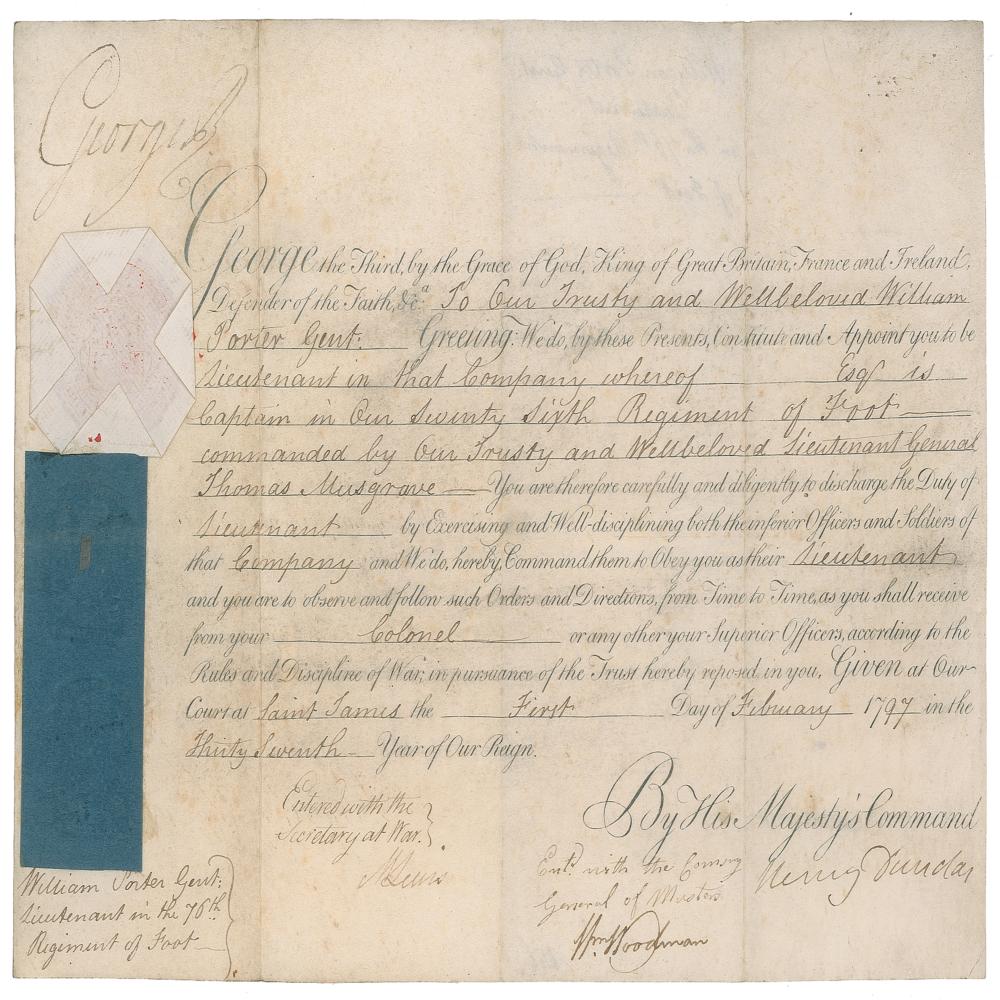 George R
George the Third, by the Grace of God, King of Great Britain, France and Ireland,
Defender of the Faith, &c.a To Our Trusty and Wellbeloved William
Porter Gent: Greeting: We do, by these Presents, Constitute and Appoint you to be
Lieutenant in that Company whereof Esqr. is
Captain in Our Seventy Sixth Regiment of Foot
commanded by Our Trusty and Wellbeloved Lieutenant General
Thomas Musgrave You are therefore carefully and diligently to discharge the Duty of
Lieutenant by Exercising and Well-disciplining both the inferior Officers and Soldiers of
that Company and We do, hereby, Command them to Obey you as their Lieutenant
and you are to observe and follow such Orders and Directions, from Time to Time, as you shall receive
from your Colonel or any other your Superior Officers, according to the
Rules and Discipline of War, in pursuance of the Trust hereby reposed in you. Given at Our
Court at Saint James the First Day of February 1797 in the
Thirty Seventh Year of Our Reign.
By His Majesty's Command
Henry Dundas
Entered with the
Secretary at War.
MLewis
Entd. with the Comisry
General of Musters
Wm. Woodman
William Porter Gent:
Lieutenant in the 76th
Regiment of Foot